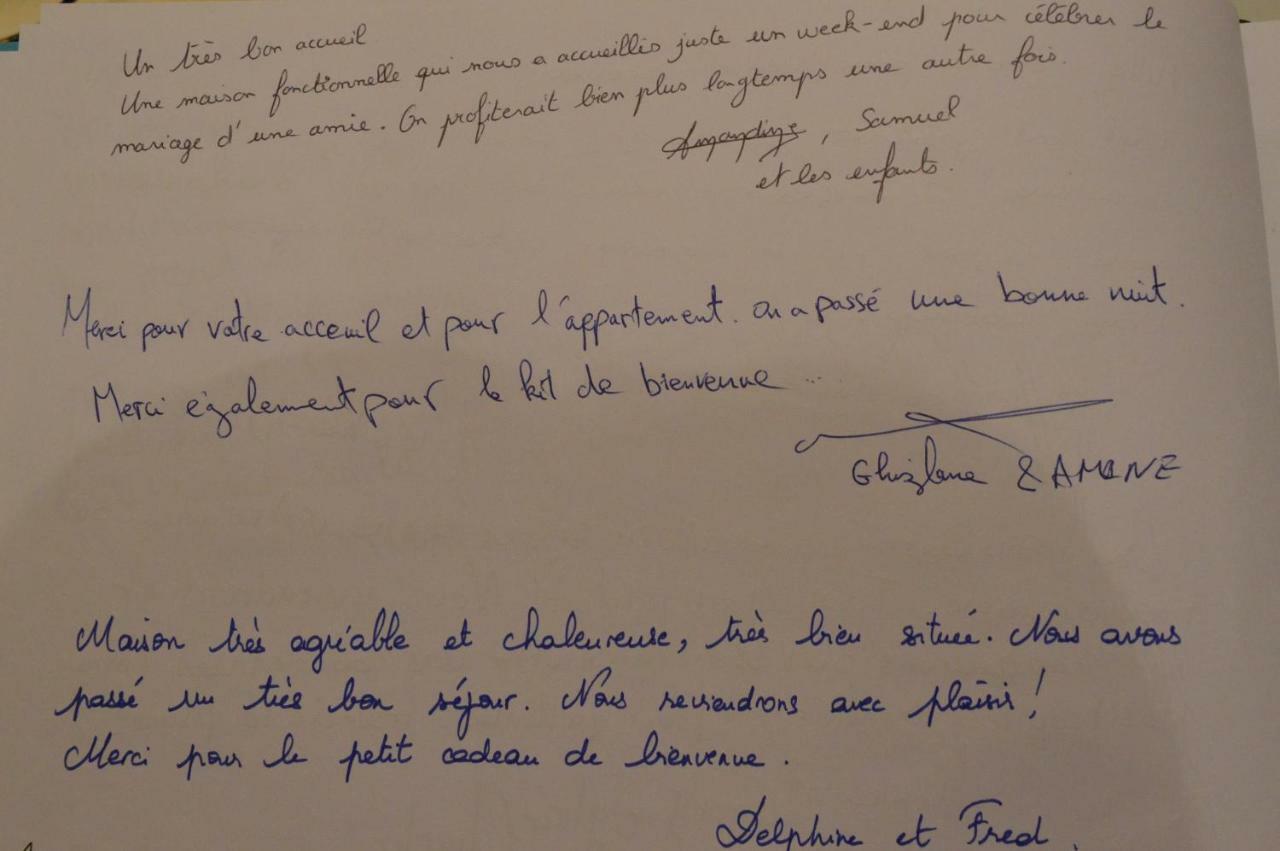 Un très bon accueil
Une maison fonctionnelle qui nous a accueillis juste un week-end pour célébrer le
mariage d'une amie. On profiterait bien plus longtemps une autre fois.
Amandine, Samuel
et les enfants.
Merci pour votre acceuil et pour l'appartement. On a passé une bonne nuit.
Merci également pour le kit de bienvenue...
Ghizlane & AMINE
Maison très agréable et chaleureuse, très bien située. Nous avons
passé un très bon séjour. Nous reviendrons avec plaisir !
Merci pour le petit cadeau de bienvenue.
Delphine et Fred.